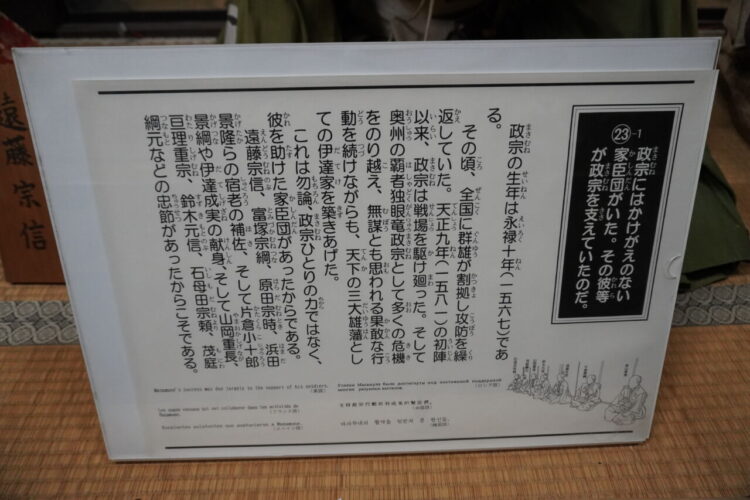 ㉓-1
政宗にはかけがえのない
家臣団がいた。その彼等
が政宗を支えていたのだ。
政宗の生年は永禄十年、(一五六七)であ
る。
その頃、全国に群雄が割拠し攻防を繰
返していた。天正九年(一五八一)の初陣
以来、政宗は戦場を駆け廻った。そして
奥州の覇者独眼竜政宗として多くの危機
をのり越え、無謀とも思われる果敢な行
動を続けながらも、天下の三大雄藩とし
ての伊達家を築きあげた。
これは勿論、政宗ひとりの力ではなく、
彼を助けた家臣団があったからである。
遠藤宗信、富塚宗綱、原田宗時、浜田
景隆らの宿老の補佐、そして片倉小十郎
景綱や伊達成実の献身、そして山岡重長、
亘理重宗、鈴木元信、石母田宗頼、茂庭
綱元などの忠節があったからこそである。
Masamune's success was due largely to the support of his soldiers.
(英語)
(フランス語)
(スペイン語)
(ロシア語)
(中国語)
(韓国語)
遠藤宗信